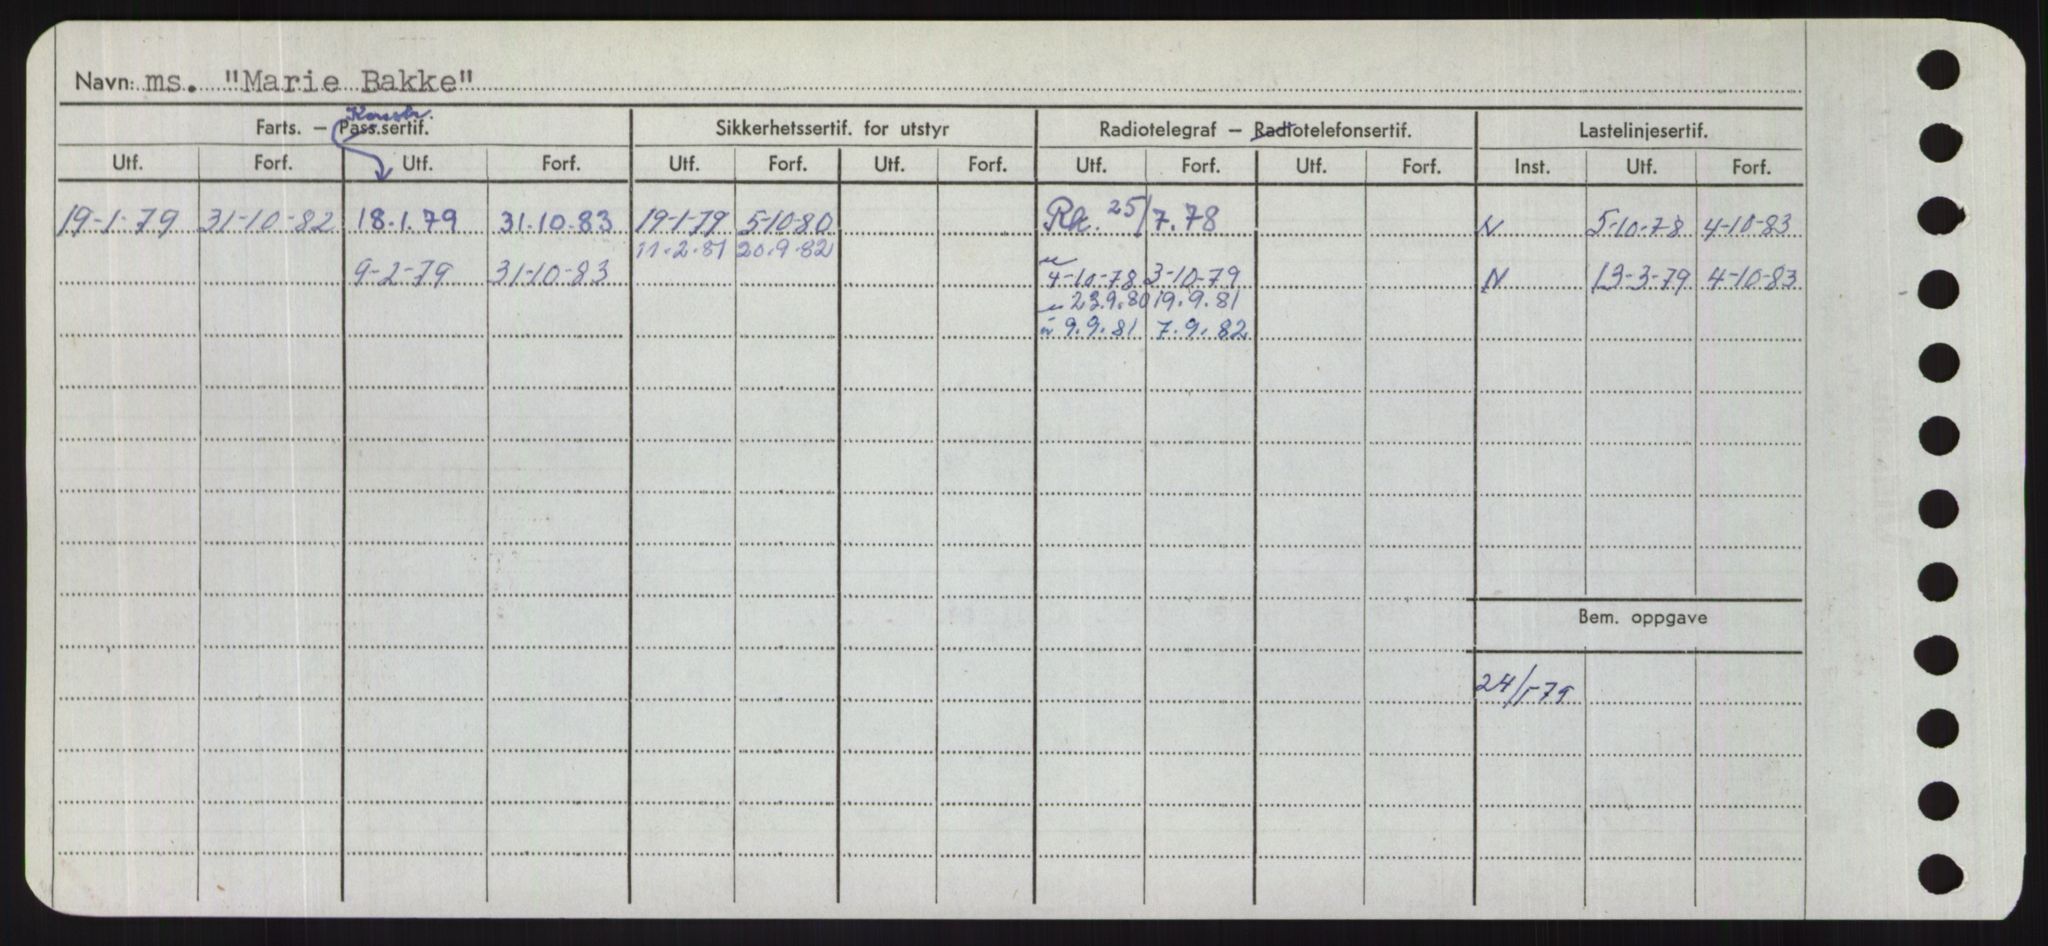 Navn: ms. "Marie Bakke"
Konstr.
Farts. — Pass.sertif. Sikkerhetssertif. for utstyr Radiotelegraf — Radiotelefonsertif. Lastelinjesertif.
Utf. Forf. Utf. Forf. Utf. Forf. Utf. Forf. Utf. Forf. Utf. Forf. Inst. Utf. Forf.
19-1-79 31-10-82 18.1.79 31.10.83 19-1-79 5-10-80 Rk. 25/7.78 N 5-10-78 4-10-83
11.2.81 20.9.82
9-2-79 31-10-83 4-10-78 3-10-79 N 13-3-79 4-10-83
23.9.80 19.9.81
9.9.81 7.9.82
Bem. oppgave
24/1-79